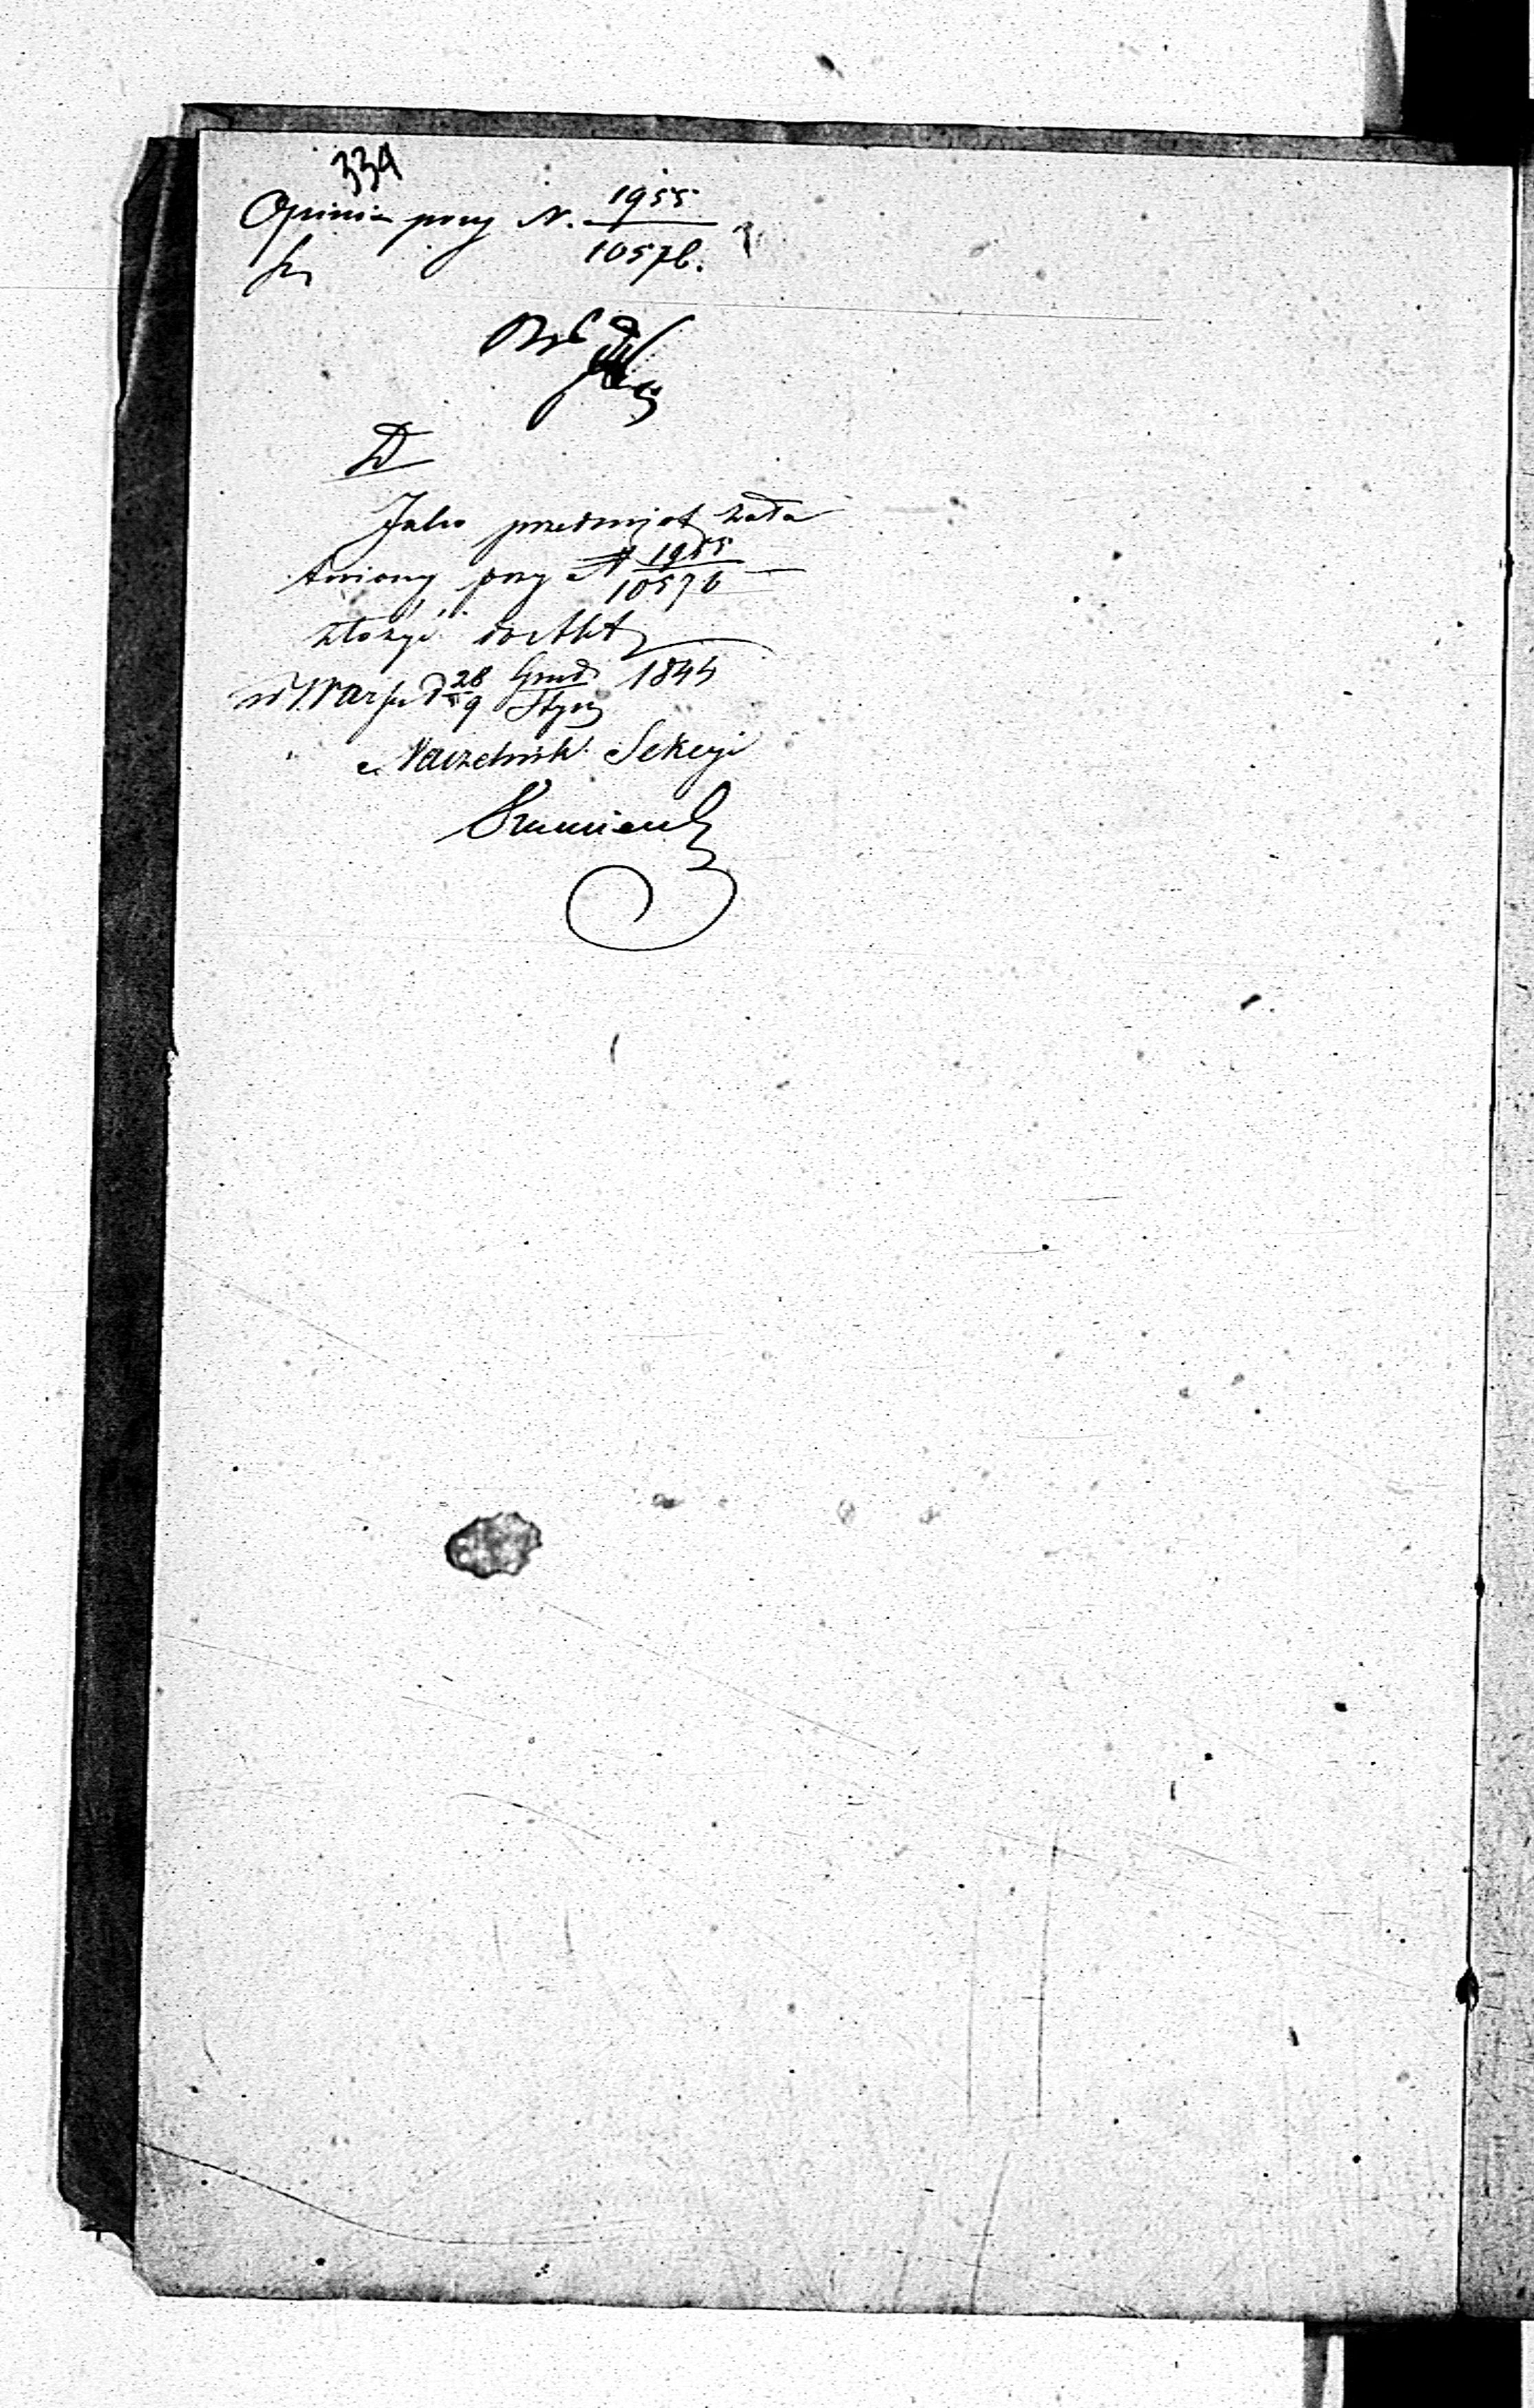 334
Opinia przy N. 1955/10576.
D
Jako przedmiot zała
twiony przy N 1955/10576
złożyć do Akt
w Warsz d 28/9 Grud/Stycz 1844
Naczelnik Sekcyi